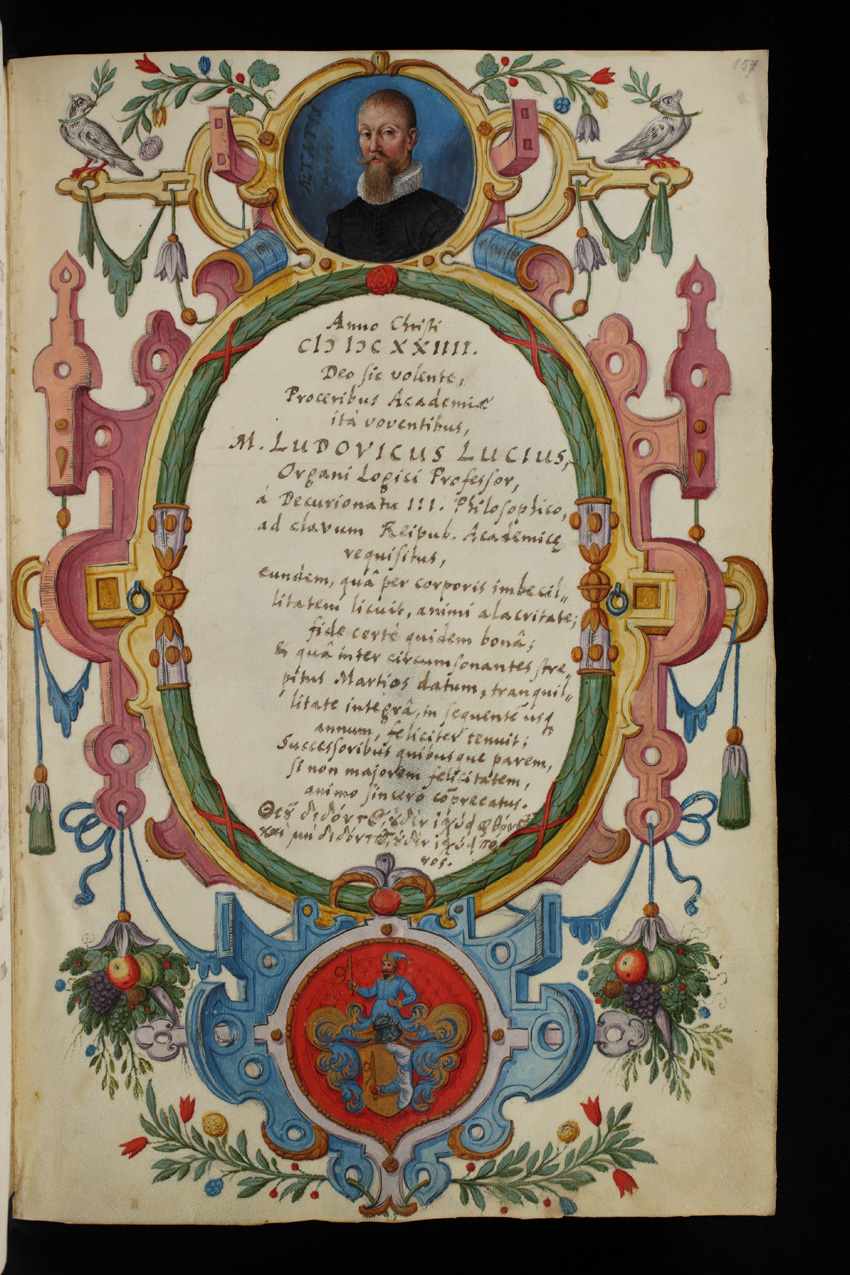 157
ÆTATIS
Anno Christi
CIƆ IƆC XXIIII.
Deo sic volente,
Proceribus Academiæ
ità voventibus,
M. LUDOVICUS LUCIUS,
Organi Logici Professor,
à Decurionatu III. Philosophico,
ad clavum Reipub. Academicę
requisitus,
eundem, quâ per corporis imbecil„
litatem licuit, animi alacritate;
fide certè quidem bonâ;
& quâ inter circumsonantes stre„
pitus Martios datum, tranquil„
litate integrâ, in sequentē usq
annum, feliciter tenuit;
Successoribus quibusque parem,
si non majorem felicitatem,
animo sincero cōprecatus.
Θεȣ διδόντ
καὶ μὴ διδόντ
νος.